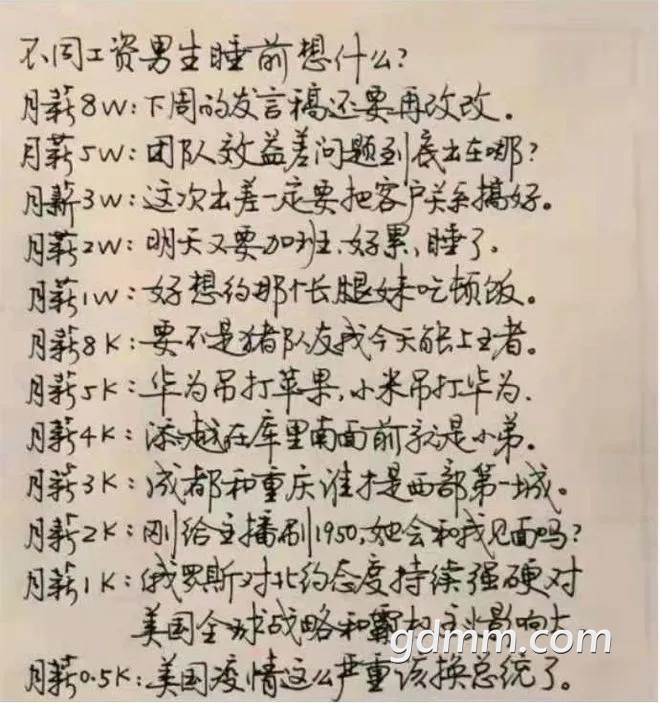 不同工资男生睡前想什么?
月薪8W:下周的发言稿还要再改改。
月薪5W:团队效益差问题到底出在哪?
月薪3W:这次出差一定要把客户关系搞好。
月薪2W:明天又要加班,好累,睡了.
月薪1W:好想约那个长腿妹吃顿饭。
月薪8K:要不是猪队友我今天能上王者。
月薪5K:华为吊打苹果,小米吊打华为.
月薪4K:汤神在库里南面前就是小弟。
月薪3K:成都和重庆谁才是西部第一城。
月薪2K:刚给主播刷1950,她会和我见面吗?
月薪1K:俄罗斯对北约态度持续强硬对
美国全球战略和霸权主义影响大
gdmm.com
月薪0.5K:美国疫情这么严重该换总统了。